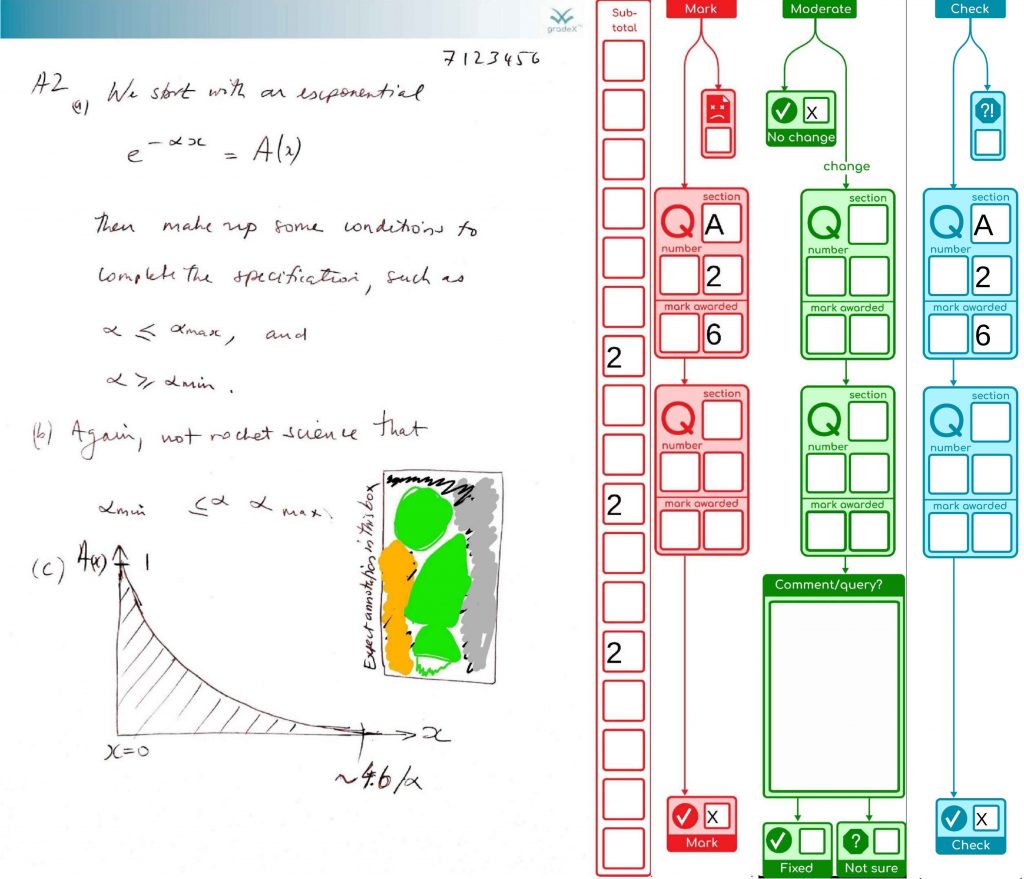 gradeX
7123456
A2
(a) We start with an exponential
e^{-αx} = A(x)
then make up some conditions to
complete the specification, such as
α ≤ αmax, and
α ≥ αmin.
(b) Again, not rocket science that
αmin ≤ α αmax.
Expect annotation in this box
(c) A(x) 1
x=0
x
~4.6/α
Sub-
total
2
2
2
Mark
Q
section
A
number
2
mark awarded
6
Q
section
number
mark awarded
X
Mark
Moderate
X
No change
change
Q
section
number
mark awarded
Q
section
number
mark awarded
Comment/query?
Fixed
?
Not sure
Check
?!
Q
section
A
number
2
mark awarded
6
Q
section
number
mark awarded
X
Check